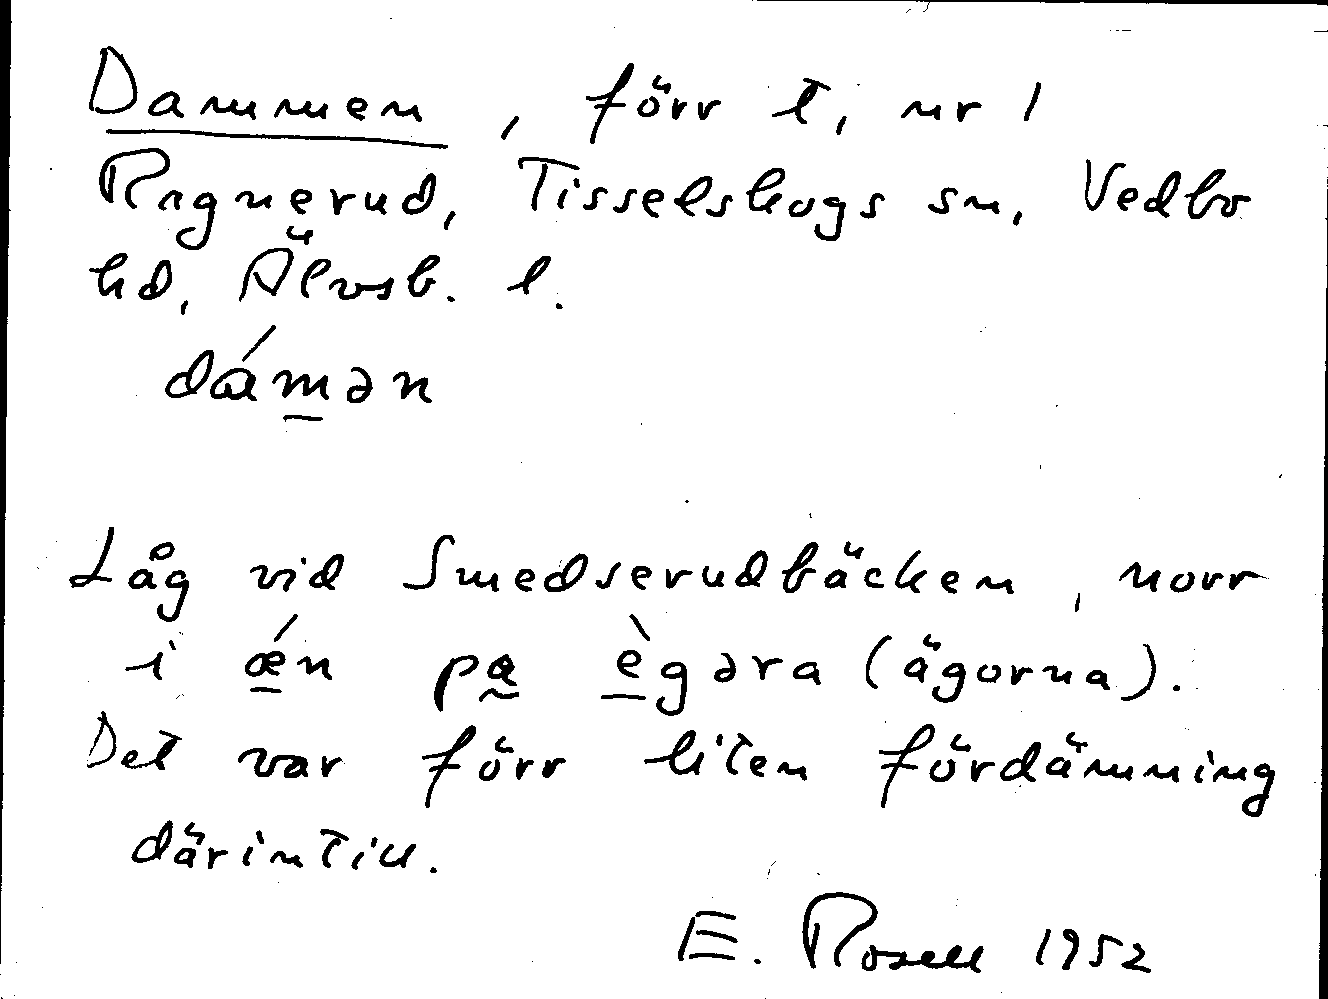 Dammen, förr t, nr 1
Ragnerud, Tisselskogs sn, Vedbo
hd, Älvsb. l.
dám̲ən
Låg vid Smedserudbäcken, norr
i ǽ̲n pa̰ è̲gəra (ägorna).
Det var förr liten fördämning
därintill.
E. Rosell 1952